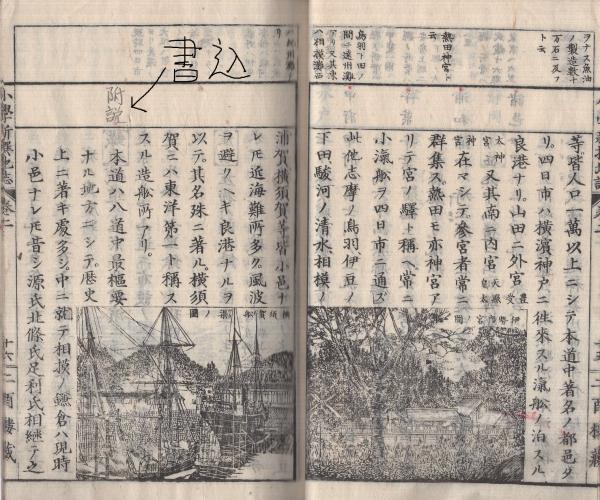 ヲナス魚油
ノ製造數十
万石ニ及フ
ト云
熱田神宮ト
云
鳥羽下田ノ
間ニ遠州灘
アリ又其東
ハ相模灘西
等皆人口一萬以上ニシテ本道中著名ノ都邑タ
リ。四日市ハ橫濱神戸ニ往來スル滊船ノ泊スル
良港ナリ。山田ニ外宮豊受
太神宮又其南ニ内宮天照
皇太神宮
在マシテ參宮者常ニ
群集ス熱田モ亦神宮ア
リテ宮ノ驛ト稱ヘ常ニ
小滊船ヲ四日市ニ通ズ
此他志摩ノ鳥羽伊豆ノ
下田駿河ノ清水相模ノ
書込
附説
浦賀橫須賀等皆小邑ナ
レモ近海難所多ク。風波
ヲ避クヘキ良港ナルヲ
以テ。其名殊ニ著ル。橫須
賀ニハ東洋第一ト稱ス
スル造船所アリ。
本道ハ八道中最樞要
ナル地方ニシテ。歷史
上ニ著キ慶多シ。中ニ就テ相摸ノ鎌倉ハ現時
小邑ナレモ昔シ源氏北條氏足利氏相繼テ之
橫須賀造船
圖
卷二
十六
二酉樓藏